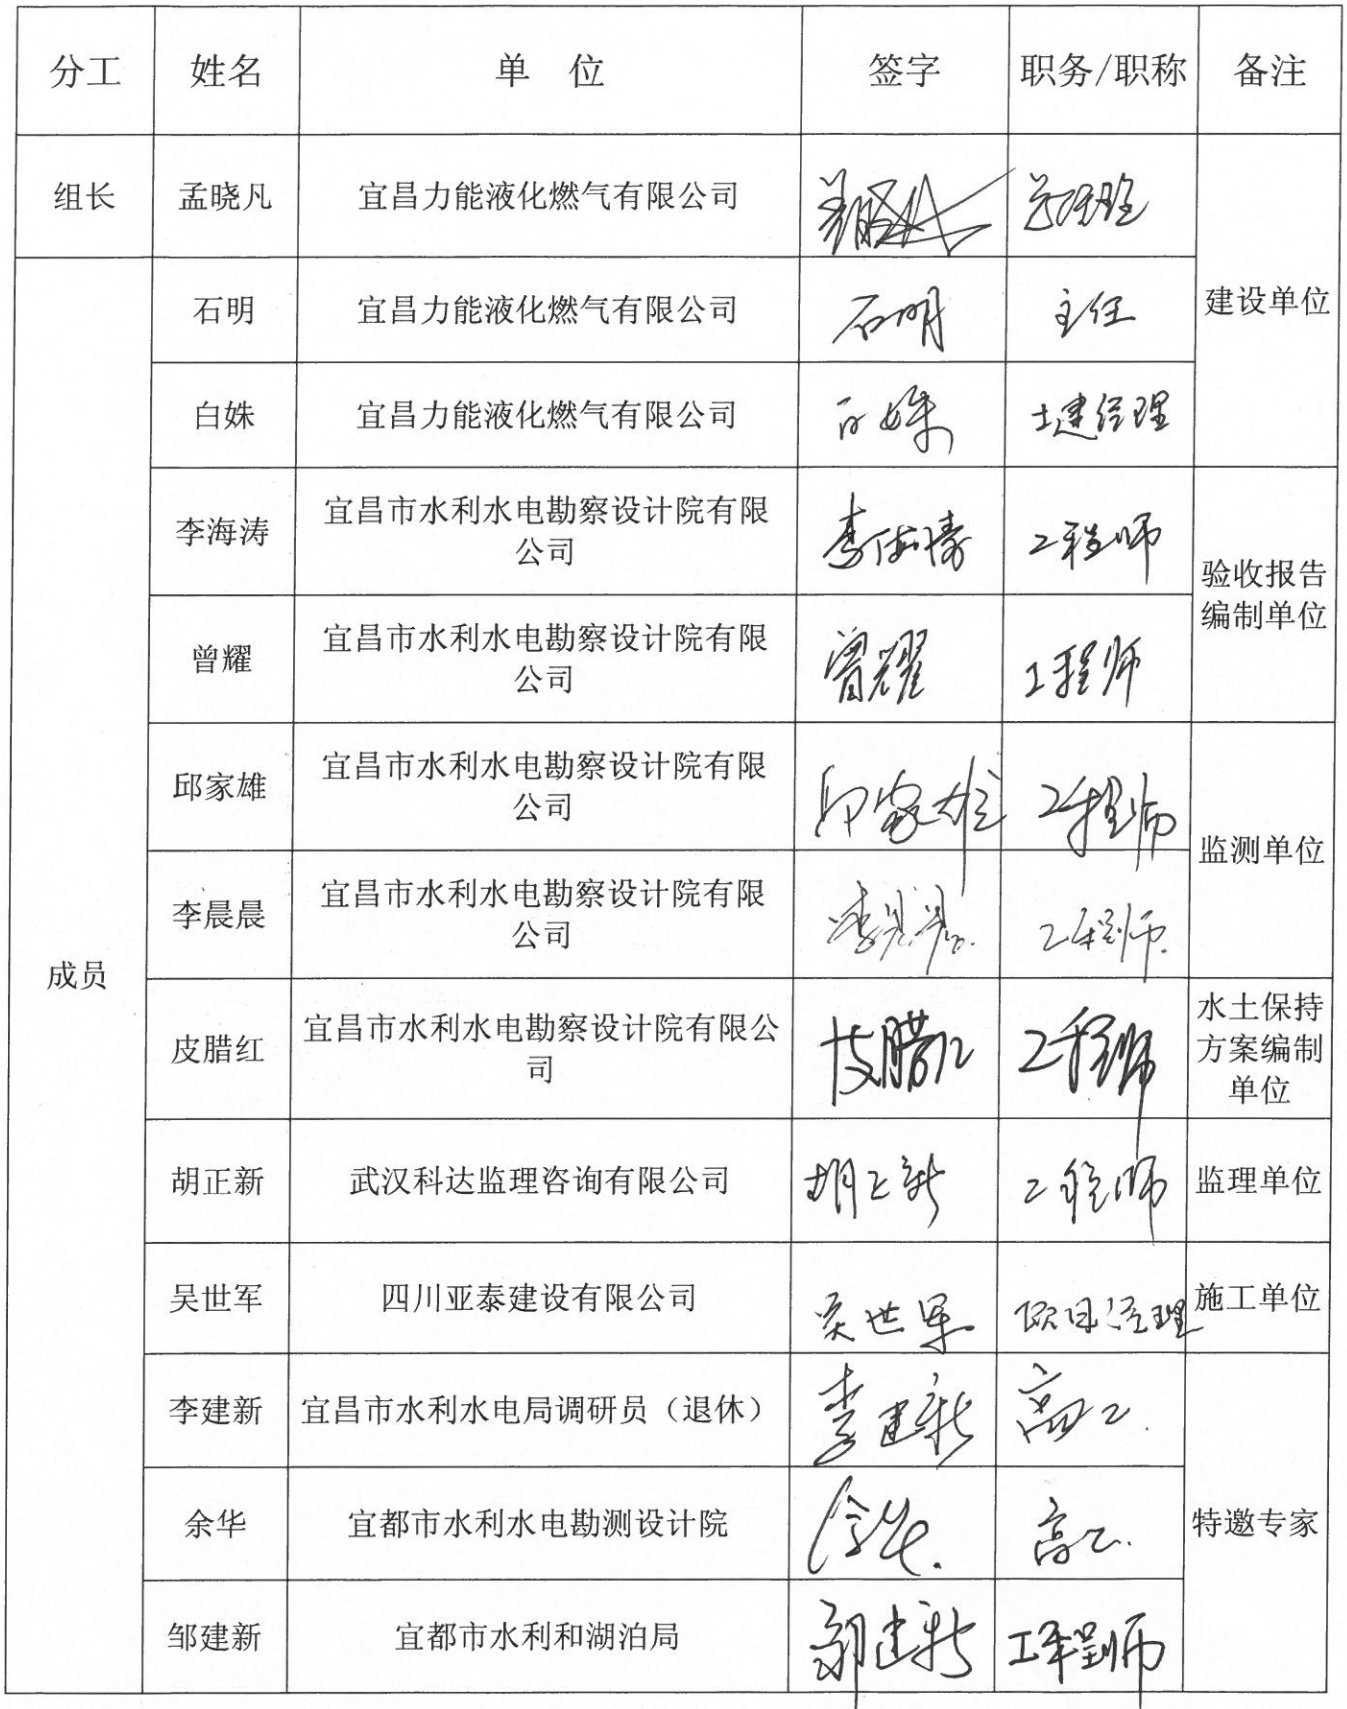 分工 姓名 单 位 签字 职务/职称 备注
组长 孟晓凡 宜昌力能液化燃气有限公司 总经理
石明 宜昌力能液化燃气有限公司 石明 主任 建设单位
白姝 宜昌力能液化燃气有限公司 白姝 土建经理
李海涛 宜昌市水利水电勘察设计院有限
公司 李海涛 工程师
验收报告
编制单位
曾耀 宜昌市水利水电勘察设计院有限
公司 曾耀 工程师
邱家雄 宜昌市水利水电勘察设计院有限
公司 邱家雄 工程师
监测单位
李晨晨 宜昌市水利水电勘察设计院有限
公司 李晨晨 工程师
成员
皮腊红 宜昌市水利水电勘察设计院有限公
司 皮腊红 工程师
水土保持
方案编制
单位
胡正新 武汉科达监理咨询有限公司 胡正新 工程师 监理单位
吴世军 四川亚泰建设有限公司 吴世军 项目经理 施工单位
李建新 宜昌市水利水电局调研员（退休） 李建新 高工
余华 宜都市水利水电勘测设计院 余华 高工 特邀专家
邹建新 宜都市水利和湖泊局 邹建新 工程师